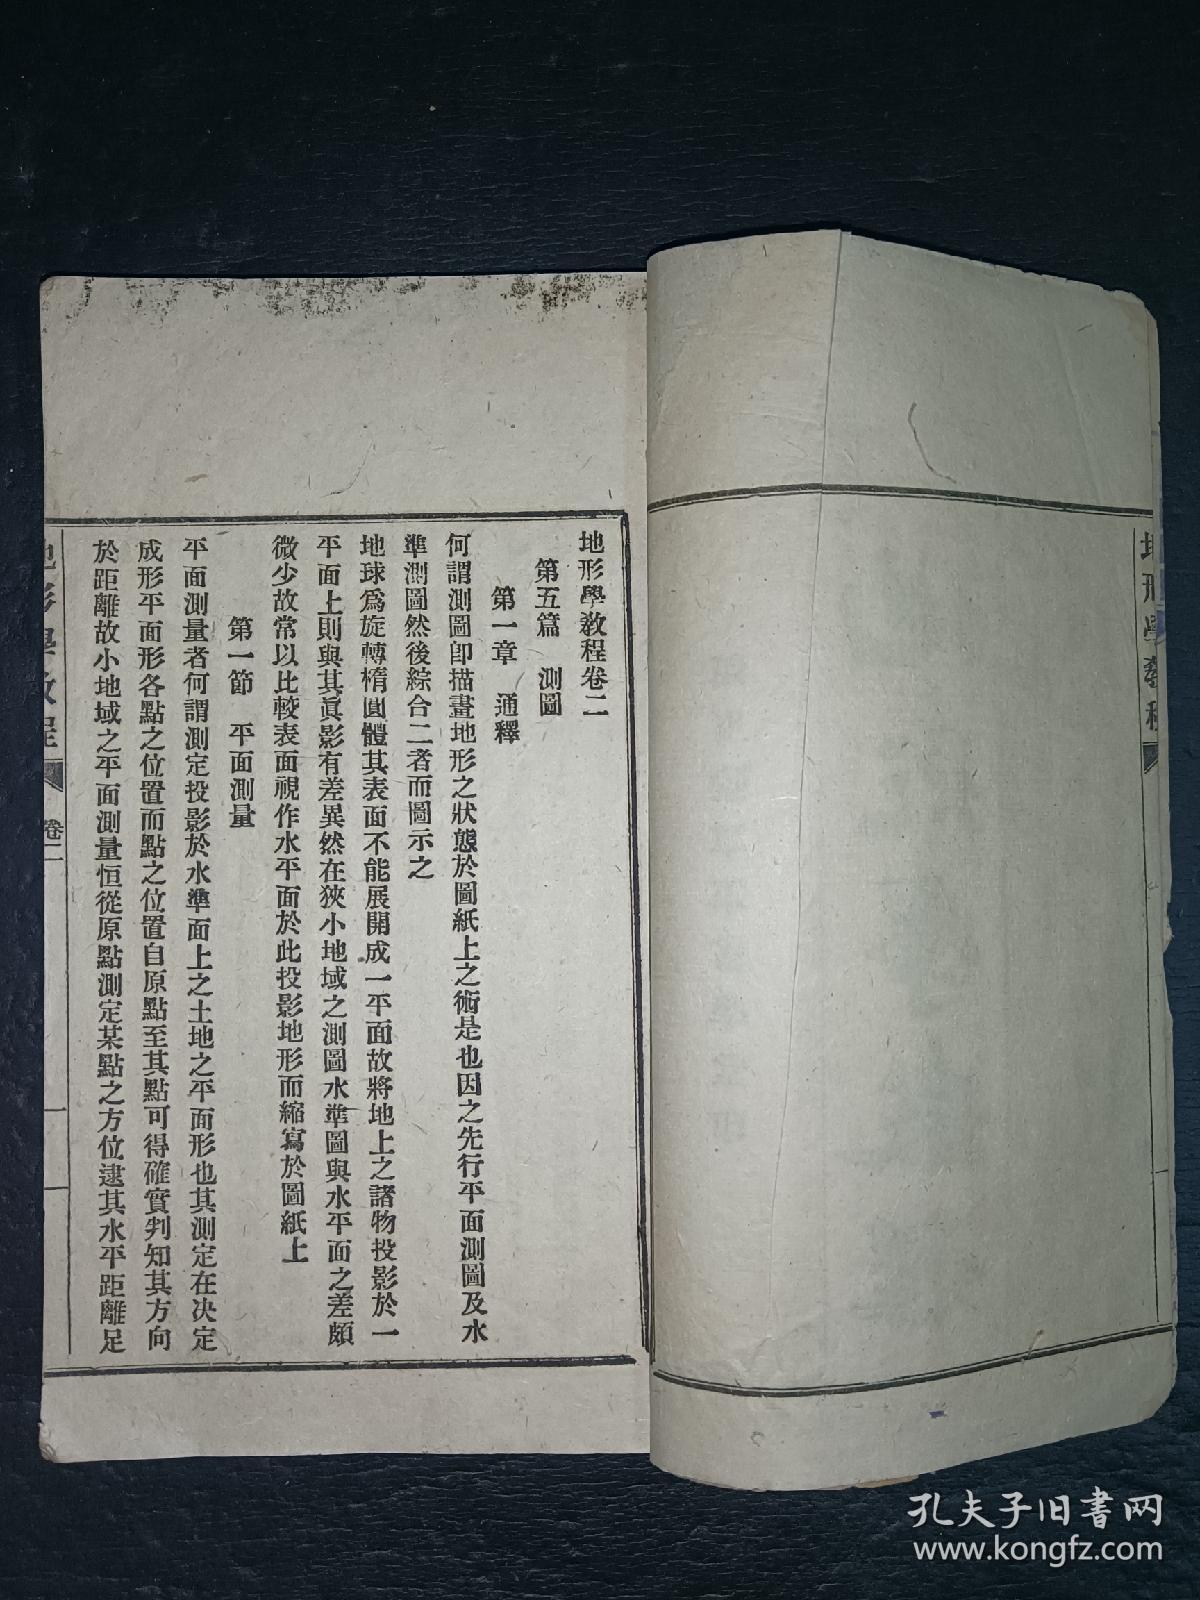 地形學教程
地形學教程卷二
第五篇　測圖
第一章　通釋
何謂測圖卽描畫地形之狀態於圖紙上之術是也因之先行平面測圖及水
準測圖然後綜合二者而圖示之
地球爲旋轉橢圓體其表面不能展開成一平面故將地上之諸物投影於一
平面上則與其眞影有差異然在狹小地域之測圖水準圖與水平面之差頗
微少故常以比較表面視作水平面於此投影地形而縮寫於圖紙上
第一節　平面測量
平面測量者何謂測定投影於水準面上之土地之平面形也其測定在決定
成形平面形各點之位置而點之位置自原點至其點可得確實判知其方向
於距離故小地域之平面測量恒從原點測定某點之方位逮其水平距離足
地形學教程　卷二　一
孔夫子旧書网
www.kongfz.com